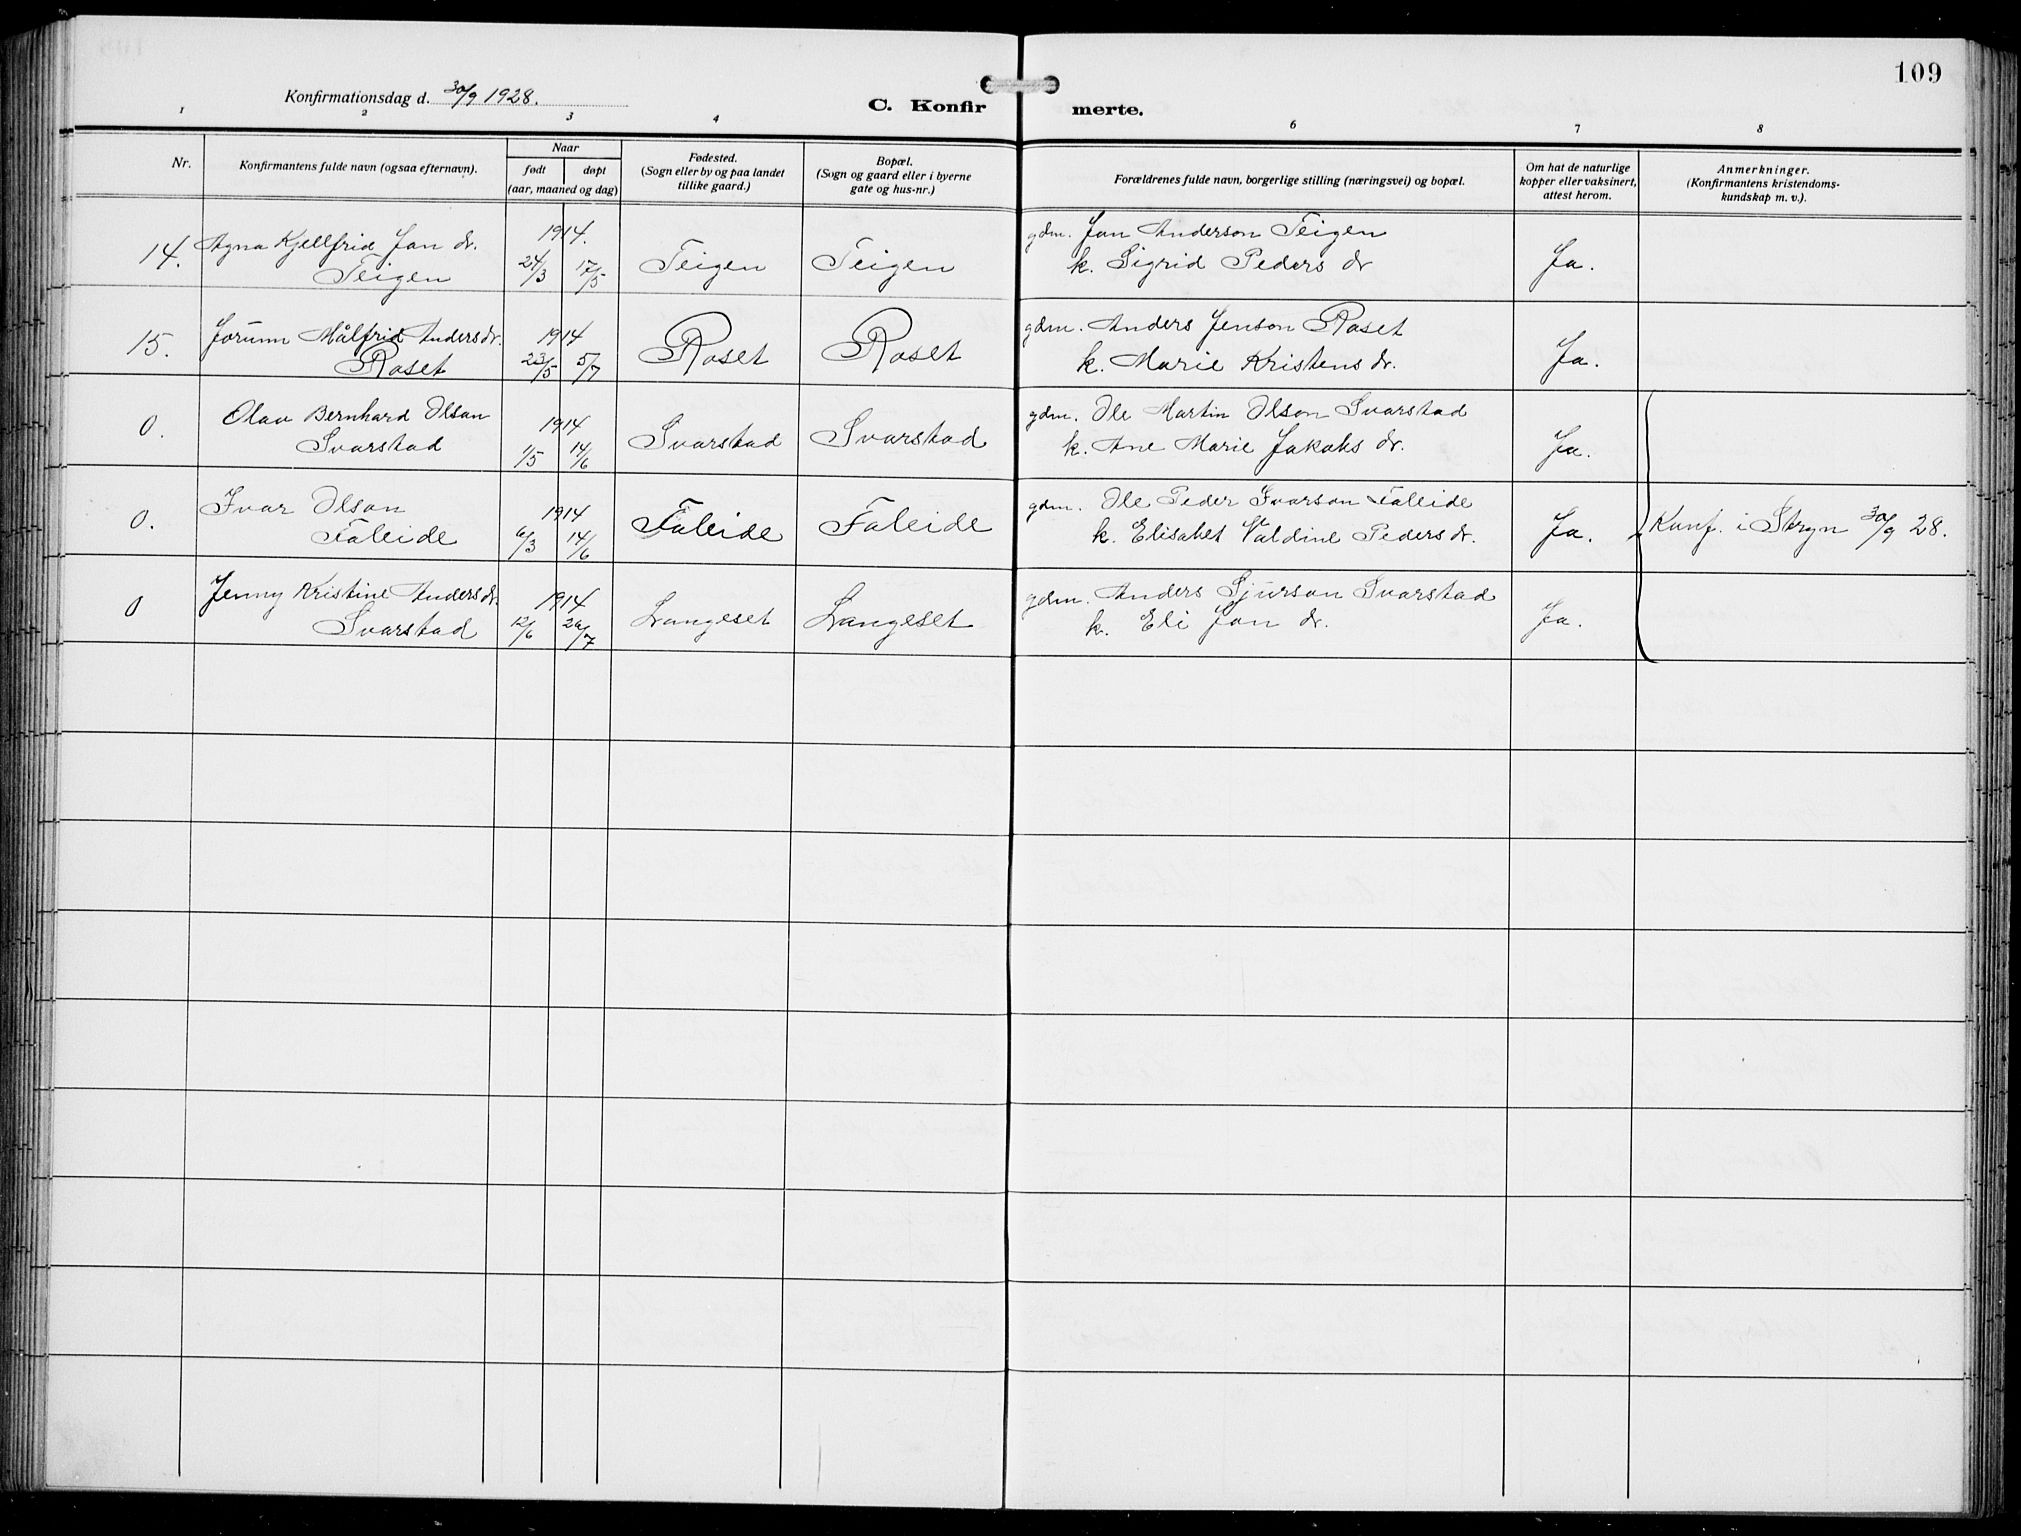 109
Konfirmationsdag d. 30/9 1928.
C. Konfirmerte.
1 2 3 4 6 7 8
Nr.
Konfirmantens fulde navn (ogsaa efternavn).
Naar
født døpt
(aar, maaned og dag)
Fødested.
(Sogn eller by og paa landet
tillike gaard.)
Bopæl.
(Sogn og gaard eller i byerne
gate og hus-nr.)
Forældrenes fulde navn, borgerlige stilling (næringsvei) og bopæl.
Om hat de naturlige
kopper eller vaksinert,
attest herom.
Anmerkninger.
(Konfirmantens kristendoms-
kundskap m. v.).
14. Agna Kjellfrid Jon dr. 1914. gdm. Jon Anderson Teigen
Teigen 24/3 17/5 Teigen Teigen k. Sigrid Peders dr Ja.
15. Jorunn Målfrid Anders dr. 1914 gdm. Anders Jenson Roset
Roset 23/5 5/7 Roset Roset k. Marie Kristens dr. Ja.
0. Olav Bernhard Olson 1914 gdm. Ole Martin Olson Svarstad
Svarstad 1/5 14/6 Svarstad Svarstad k. Ane Marie Jakobs dr. Ja.
0. Ivar Olson 1914 gdm. Ole Peder Ivarson Faleide
Faleide 6/3 14/6 Faleide Faleide k. Elisabet Valdine Peders dr. Ja. Konf. i Stryn 30/9 28.
0 Jenny Kristine Anders dr. 1914 gdm. Anders Sjurson Svarstad
Svarstad 12/6 26/7 Langeset Langeset k. Eli Jon dr. Ja.